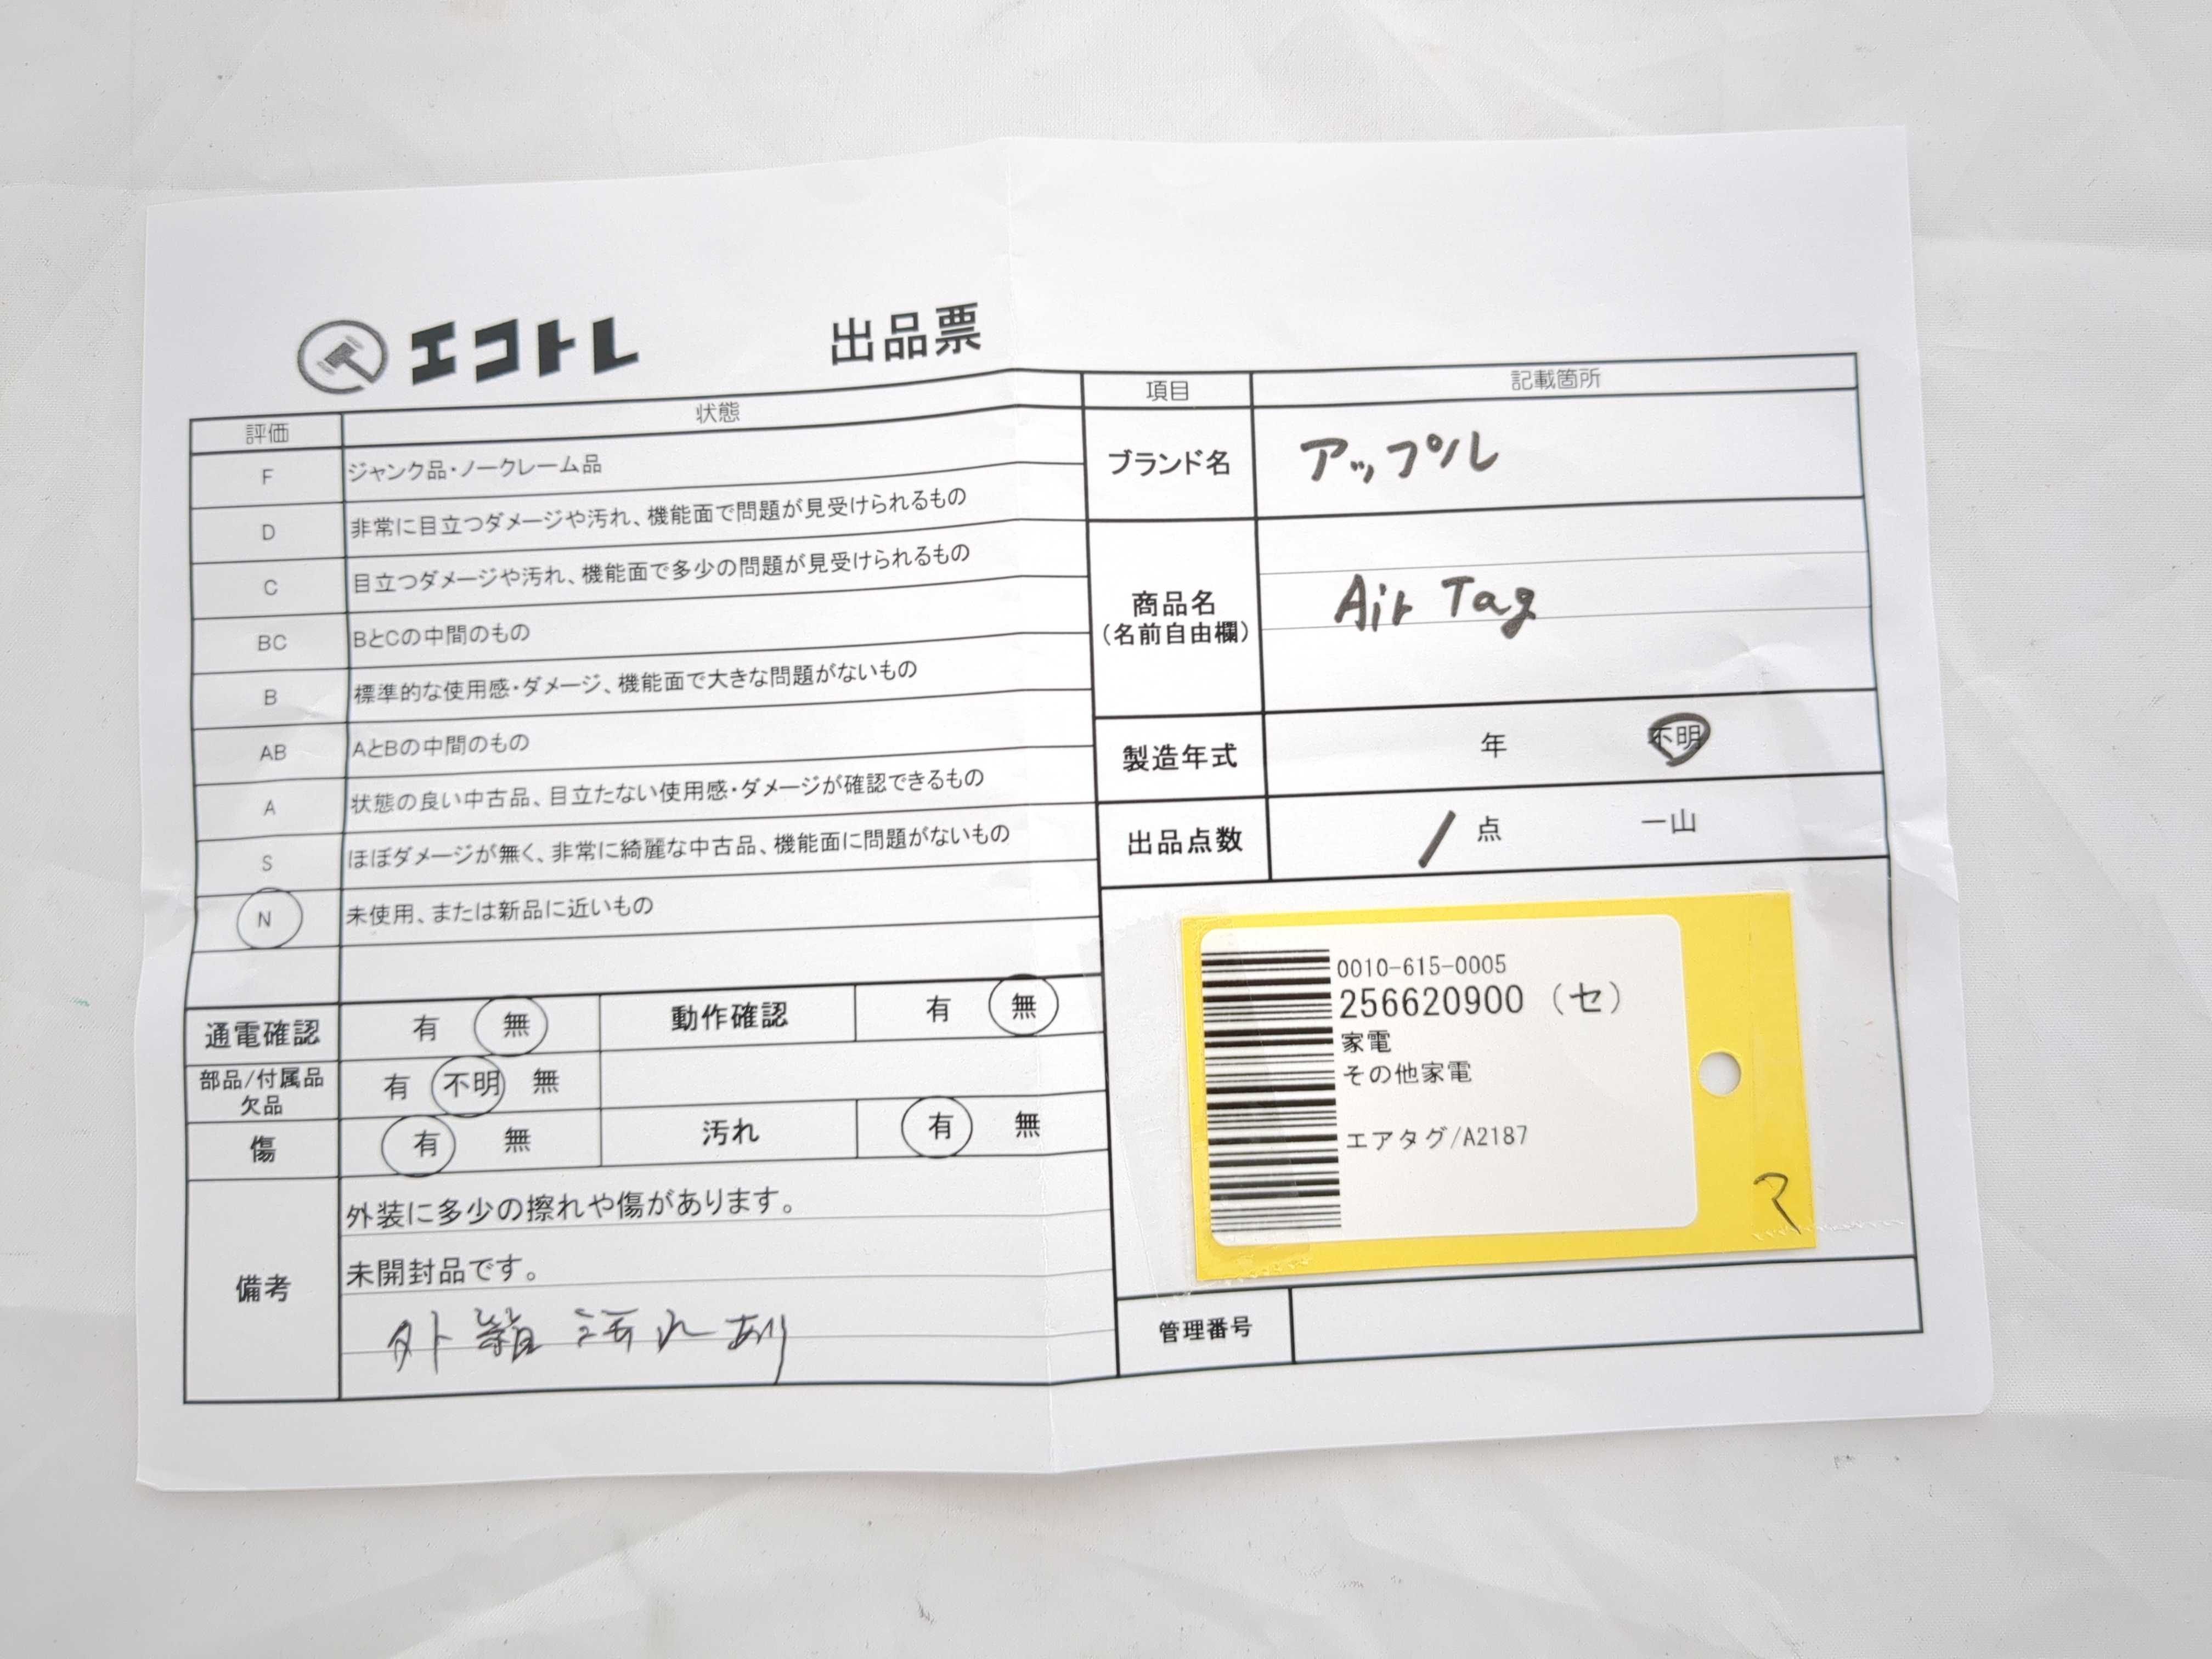 エコトレ 出品票
評価 状態
F ジャンク品・ノークレーム品
D 非常に目立つダメージや汚れ、機能面で問題が見受けられるもの
C 目立つダメージや汚れ、機能面で多少の問題が見受けられるもの
BC BとCの中間のもの
B 標準的な使用感・ダメージ、機能面で大きな問題がないもの
AB AとBの中間のもの
A 状態の良い中古品、目立たない使用感・ダメージが確認できるもの
S ほぼダメージが無く、非常に綺麗な中古品、機能面に問題がないもの
N 未使用、または新品に近いもの
通電確認 有 無 動作確認 有 無
部品/付属品
欠品 有 不明 無
傷 有 無 汚れ 有 無
備考
外装に多少の擦れや傷があります。
未開封品です。
外箱 汚れあり
項目 記載箇所
ブランド名 アップル
商品名
(名前自由欄)
Air Tag
製造年式 年 不明
出品点数 1 点 一山
0010-615-0005
256620900 (セ)
家電
その他家電
エアタグ/A2187
マ
管理番号